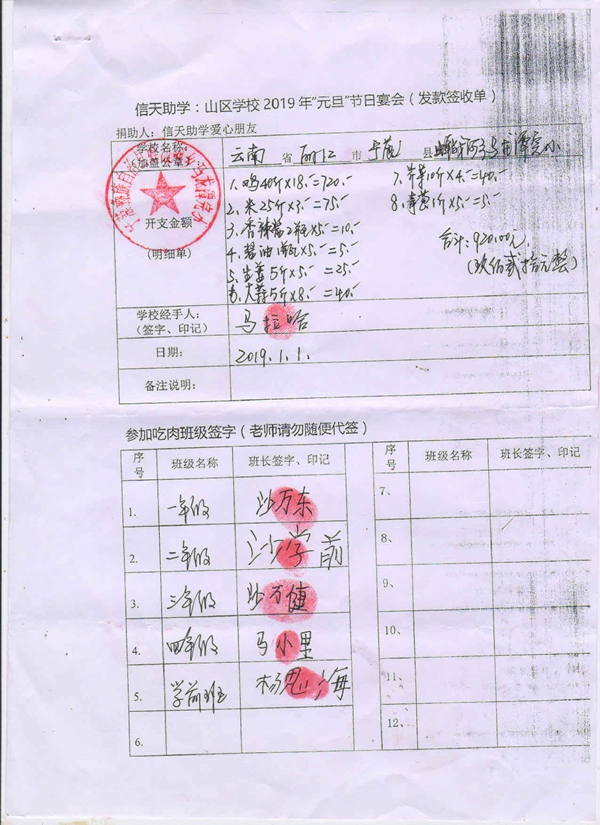 信天助学：山区学校 2019 年“元旦”节日宴会（发款签收单）
捐助人：信天助学爱心朋友
学校名称：
（加盖公章）
云南 省 丽江 市 宁蒗 县
开支金额
(明细单)
1、鸡40斤×18、=720、
2、米25斤×3、=75、
3、香辣酱2瓶×5、=10、
4、酱油1瓶×5、=5、
5、生姜5斤×5、=25、
6、大蒜5斤×8、=40、
7、芹菜10斤×4、=40、
8、1斤×5、=5、
合计：920.00元
(玖佰贰拾元整)
学校经手人：
（签字、印记）
马拉哈
日期：
2019.1.1.
备注说明：
参加吃肉班级签字（老师请勿随便代签）
序号 班级名称 班长签字、印记 序号 班级名称 班长签字、印记
1. 一年级 沙万东 7、
2. 二年级 沙学前 8、
3. 三年级 沙万健 9、
4. 四年级 马小里 10、
5. 学前班 杨思海 11、
6. 12、